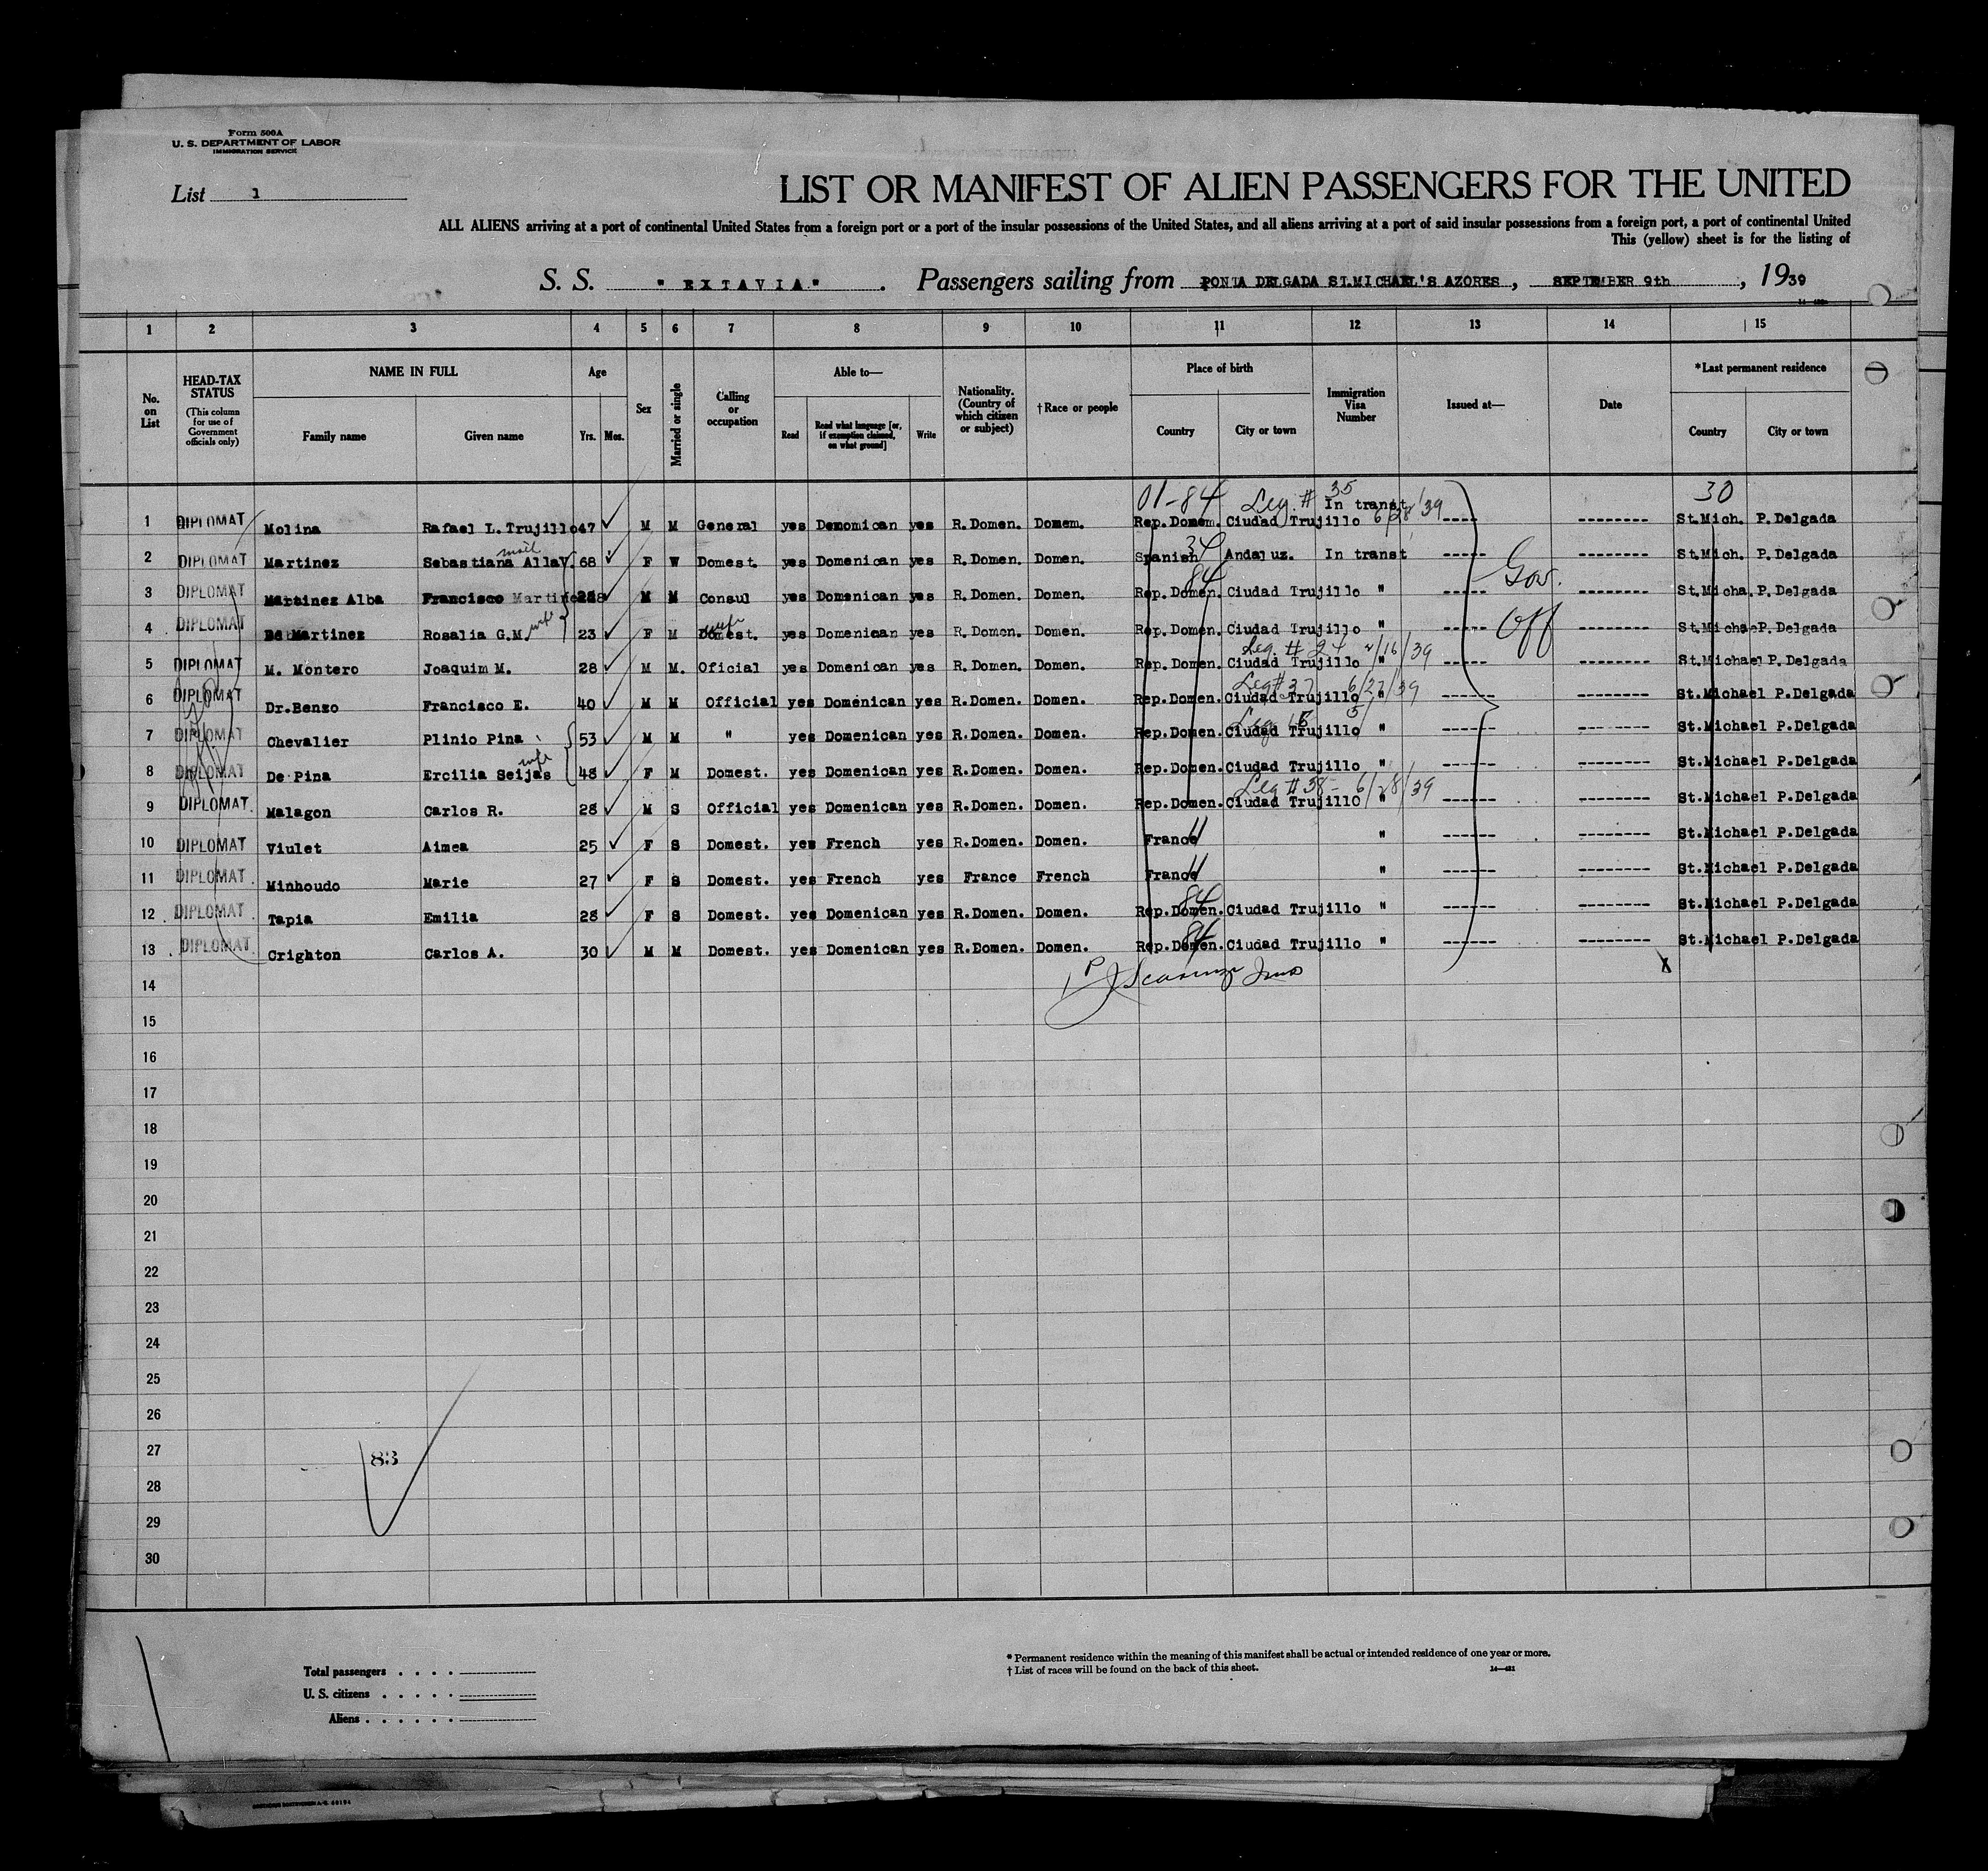 Form 500A
U. S. DEPARTMENT OF LABOR
IMMIGRATION SERVICE
List 1
LIST OR MANIFEST OF ALIEN PASSENGERS FOR THE UNITED
ALL ALIENS arriving at a port of continental United States from a foreign port or a port of the insular possessions of the United States, and all aliens arriving at a port of said insular possessions from a foreign port, a port of continental United
This (yellow) sheet is for the listing of
S. S. " EXTAVIA" . Passengers sailing from PONTA DELGADA ST.MICHAEL'S AZORES , SEPTEMBER 9th , 1939
1 2 3 4 5 6 7 8 9 10 11 12 13 14 15
No. on List
HEAD-TAX STATUS
(This column for use of Government officials only)
NAME IN FULL
Family name Given name
Age
Yrs. Mos.
Sex
Married or single
Calling or occupation
Able to—
Read Read what language [or, if exemption claimed, on what ground] Write
Nationality. (Country of which citizen or subject)
† Race or people
Place of birth
Country City or town
Immigration Visa Number
Issued at—
Date
*Last permanent residence
Country City or town
01-84 Leg. # 35 6/28/39 30
1 DIPLOMAT Molina Rafael L.Trujillo 47 M M General yes Demomican yes R.Domen. Domem. Rep.Domem. Ciudad Trujillo In transt ----- -------- St.Mich. P.Delgada
2 DIPLOMAT Martinez Sebastiana Alla V. 68 F W Domest. yes Domenican yes R.Domen. Domen. Spanish 34 Andaluz. In transt ----- -------- St.Mich. P.Delgada
3 DIPLOMAT Martinez Alba Francisco 28 M M Consul yes Domenican yes R.Domen. Domen. Rep.Domen. 84 Ciudad Trujillo " -------- St.Micha. P.Delgada
Gov.
4 DIPLOMAT De Martinez Rosalia G.M. wife 23 F M Domest. wife yes Domenican yes R.Domen. Domen. Rep.Domen. Ciudad Trujillo " ----- -------- P.Delgada
Off
Leg. # 24 2/16/39
5 DIPLOMAT M. Montero Joaquim M. 28 M M. Oficial yes Domenican yes R.Domen. Domen. Rep.Domen. Ciudad Trujillo " ----- -------- St.Michael P.Delgada
Leg # 37 6/27/39
6 DIPLOMAT Dr.Benzo Francisco E. 40 M M Official yes Domenican yes R.Domen. Domen. Rep.Domen. Ciudad Trujillo " ------ -------- St.Michael P.Delgada
7 DIPLOMAT Chevalier Plinio Pina 53 M M " yes Domenican yes R.Domen. Domen. Rep.Domen. Ciudad Trujillo ------ -------- St.Michael P.Delgada
8 DIPLOMAT De Pina Ercilia Seijas wife 48 F M Domest. yes Domenican yes R.Domen. Domen. Rep.Domen. Ciudad Trujillo " ------ -------- St.Michael P.Delgada
Leg # 38 - 6/28/39
9 DIPLOMAT. Malagon Carlos R. 28 M S Official yes Domenican yes R.Domen. Domen. Rep.Domen. Ciudad Trujillo " ------ -------- St.Michael P.Delgada
10 DIPLOMAT Viulet Aimea 25 F S Domest. yes French yes R.Domen. Domen. France " ------ -------- St.Michael P.Delgada
11 DIPLOMAT. Minhoudo Marie 27 F S Domest. yes French yes France French France " ------ -------- St.Michael P.Delgada
12 DIPLOMAT. Tapia Emilia 28 F S Domest. yes Domenican yes R.Domen. Domen. Rep.Domen. 84 Ciudad Trujillo " ------ -------- St.Michael P.Delgada
13 DIPLOMAT. Crighton Carlos A. 30 M M Domest. yes Domenican yes R.Eomen. Domen. Rep.Domen. 84 Ciudad Trujillo " ------ -------- St.Michael P.Delgada
X
14
15
16
17
18
19
20
21
22
23
24
25
26
27 83
28
29
30
Total passengers . . . .
U. S. citizens . . . . .
Aliens . . . . . .
* Permanent residence within the meaning of this manifest shall be actual or intended residence of one year or more.
† List of races will be found on the back of this sheet.
14—421